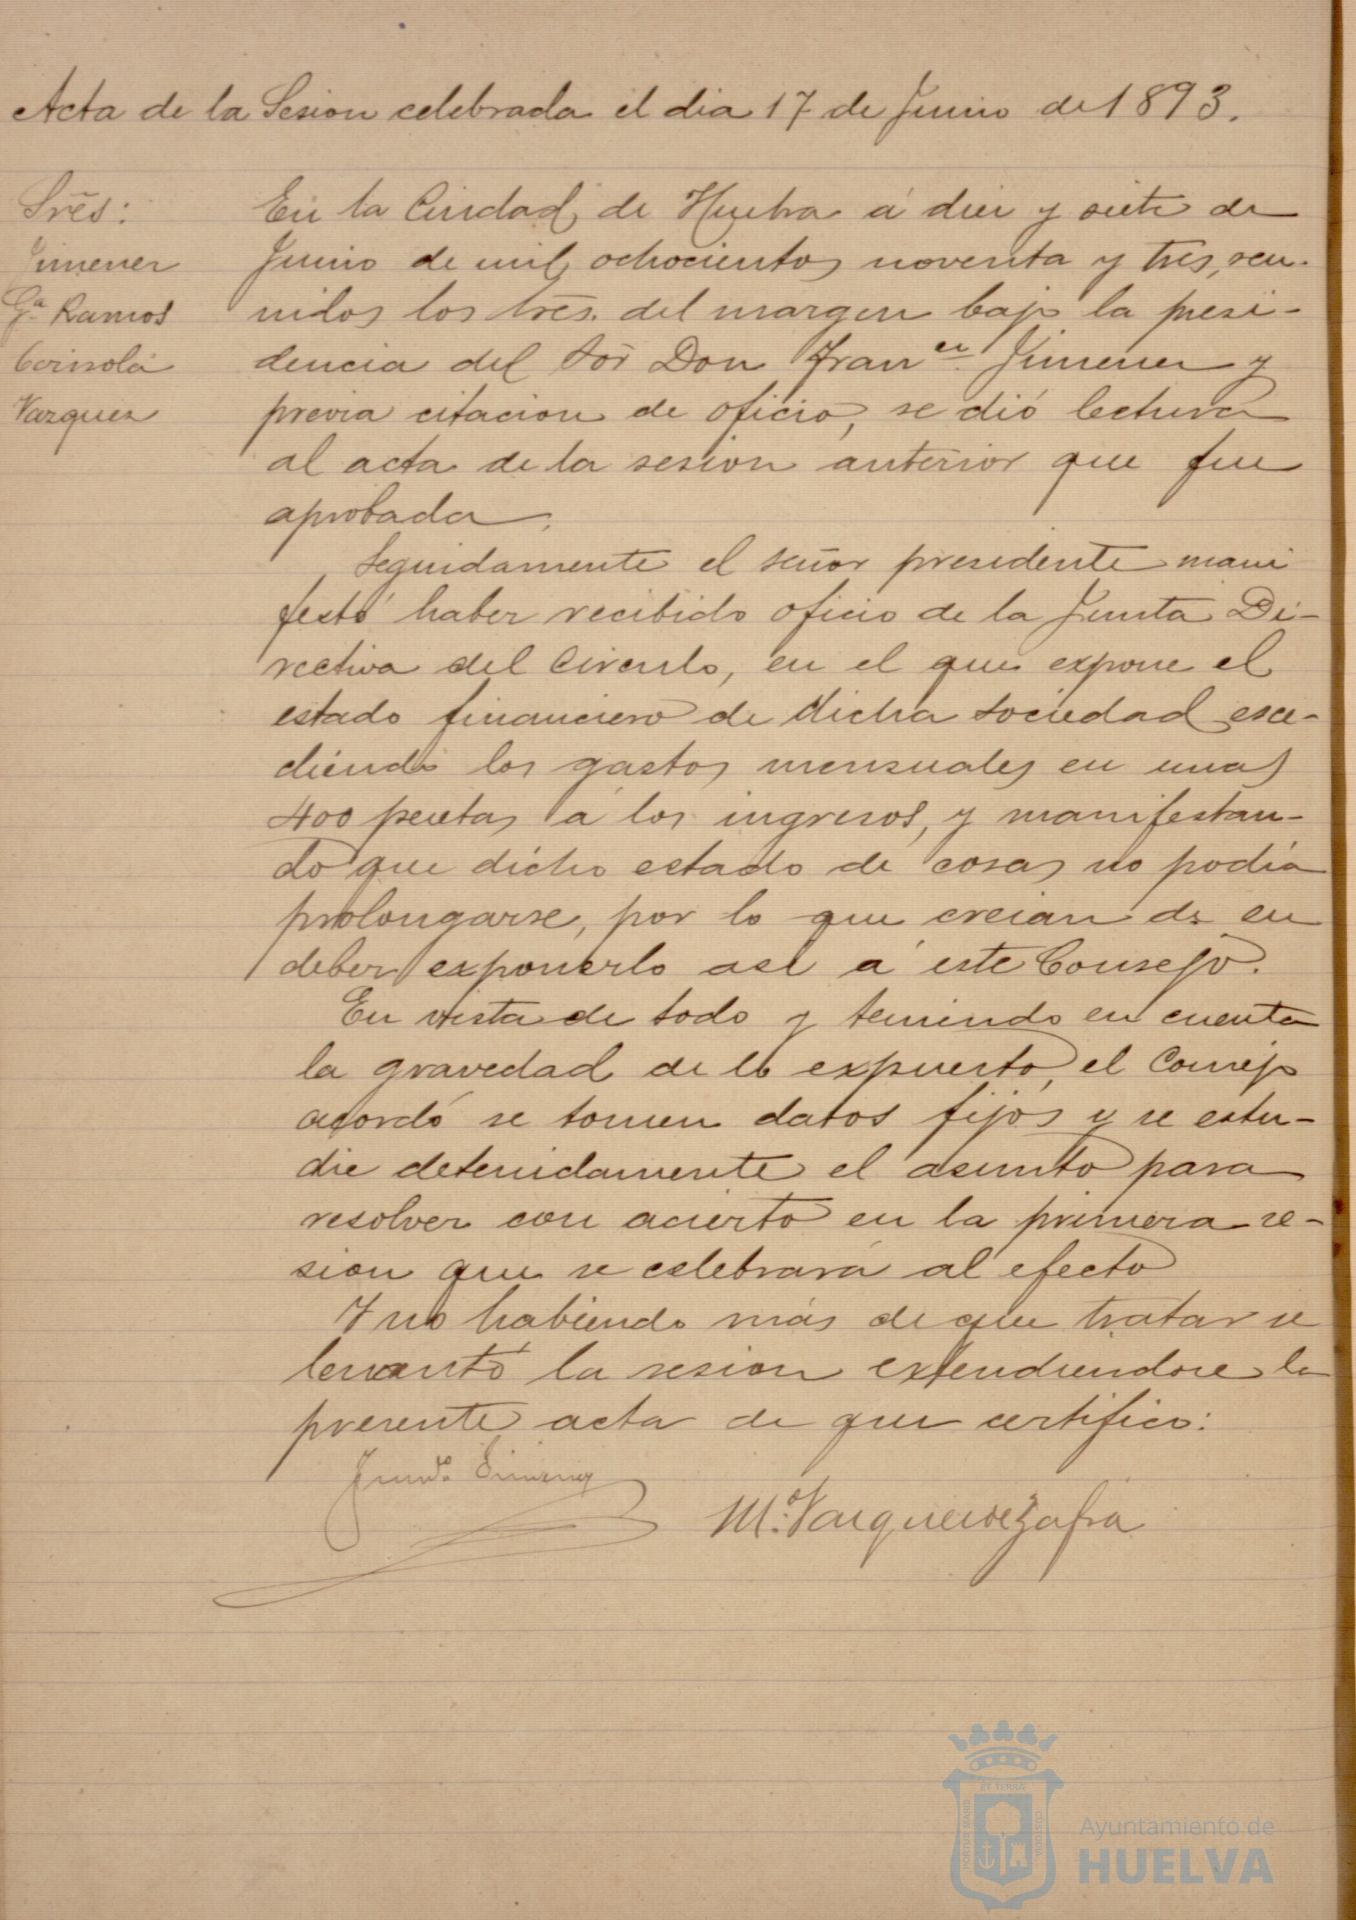 Acta de la Sesion celebrada el dia 17 de Junio de 1893.
Srẽs:
Jimenez
Gª Ramos
Vazquez
En la Ciudad de Huelva á diez y siete de
Junio de mil ochocientos noventa y tres, reu-
nidos los Srẽs. del margen bajo la presi-
dencia del Sõr Don Franco. Jimenez y
previa citacion de oficio, se dió lectura
al acta de la sesion anterior que fue
aprobada.
Seguidamente el señor presidente mani
festó haber recibido oficio de la Junta Di-
rectiva del Circulo, en el que expone el
estado financiero de dicha sociedad, esce-
diendo los gastos mensuales en unas
400 pesetas á los ingresos, y manifestan-
do que dicho estado de cosas no podía
prolongarse, por lo que creian de su
deber exponerlo así á este Consejo.
En vista de todo y teniendo en cuenta
la gravedad de lo expuesto, el Consejo
acordó se tomen datos fijos y se estu-
die detenidamente el asunto para
resolver con acierto en la primera se-
sion que se celebrará al efecto
Y no habiendo más de que tratar se
levantó la sesion extendiendose la
presente acta de que certifico:
Jimenez
M. Vazquez de Zafra
PORTUS MARIS ET TERRAE CUSTODIA
Ayuntamiento de
HUELVA